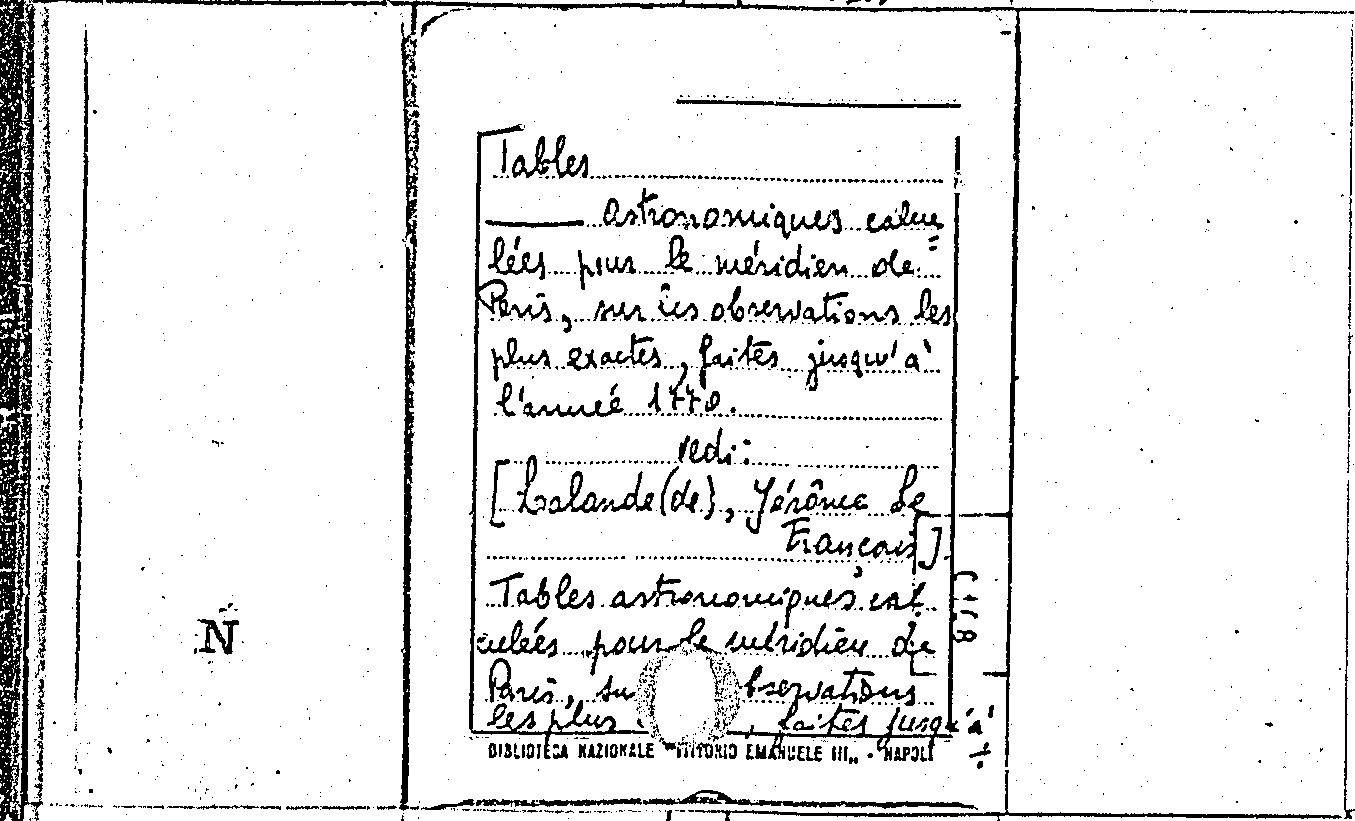 Tables
astronomiques calcu
=
lées pour le méridien de
Paris, sur les observations les
plus exactes, faites jusqu'à
l'année 1770.
vedi:
[Lalande (de), Jérôme Le
Français].
Tables astronomiques cal
culées pour le méridien de
N
Paris, su bservations
les plus , faites jusqu'à
BIBLIOTECA NAZIONALE "VITTORIO EMANUELE III„ - NAPOLI